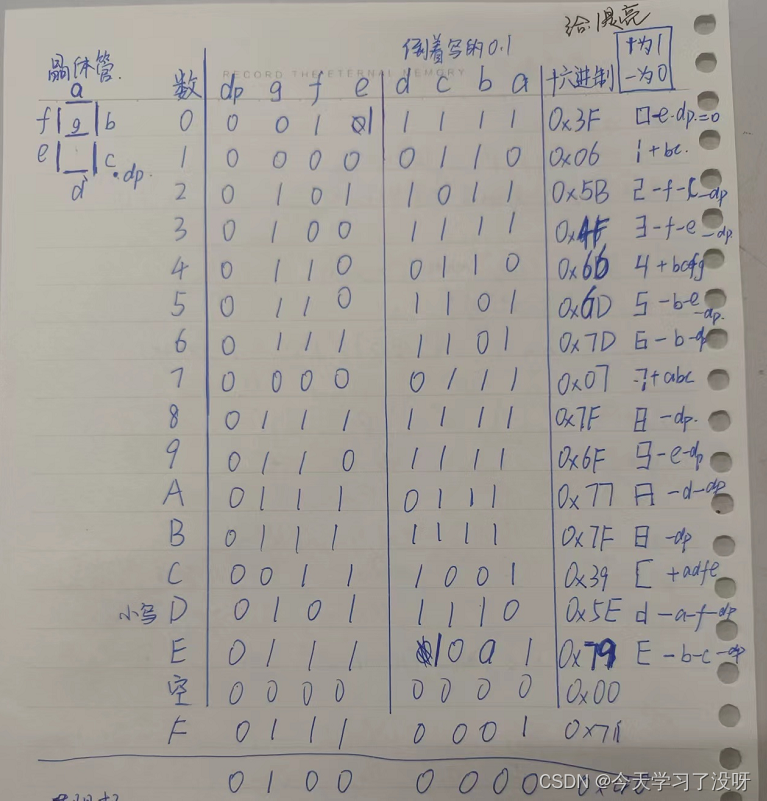 给1是亮
倒着写的0.1
十为1
一为0
晶体管.
RECORD THE ETERNAL MEMORY
a
f g b
e c .dp.
d
数 dp g f e d c b a 十六进制
0 0 0 1 1 1 1 1 1 0x3F 口-e.dp.=0
1 0 0 0 0 0 1 1 0 0x06 +bc.
2 0 1 0 1 1 0 1 1 0x5B 2-f-c-dp
3 0 1 0 0 1 1 1 1 0x4F 3-f-e-dp
4 0 1 1 0 0 1 1 0 0x66 4+bcfg
5 0 1 1 0 1 1 0 1 0x6D 5-b-e-dp.
6 0 1 1 1 1 1 0 1 0x7D 6-b-dp
7 0 0 0 0 0 1 1 1 0x07 7+abc
8 0 1 1 1 1 1 1 1 0x7F 8-dp.
9 0 1 1 0 1 1 1 1 0x6F 9-e-dp
A 0 1 1 1 0 1 1 1 0x77 A-d-dp
B 0 1 1 1 1 1 1 1 0x7F 8-dp
C 0 0 1 1 1 0 0 1 0x39 [ +adfe
小写 D 0 1 0 1 1 1 1 0 0x5E d-a-f-dp
E 0 1 1 1 1 0 0 1 0x79 E-b-c-dp
空 0 0 0 0 0 0 0 0 0x00
F 0 1 1 1 0 0 0 1 0x71
0 1 0 0 0 0 0 0
CSDN @今天学习了没呀